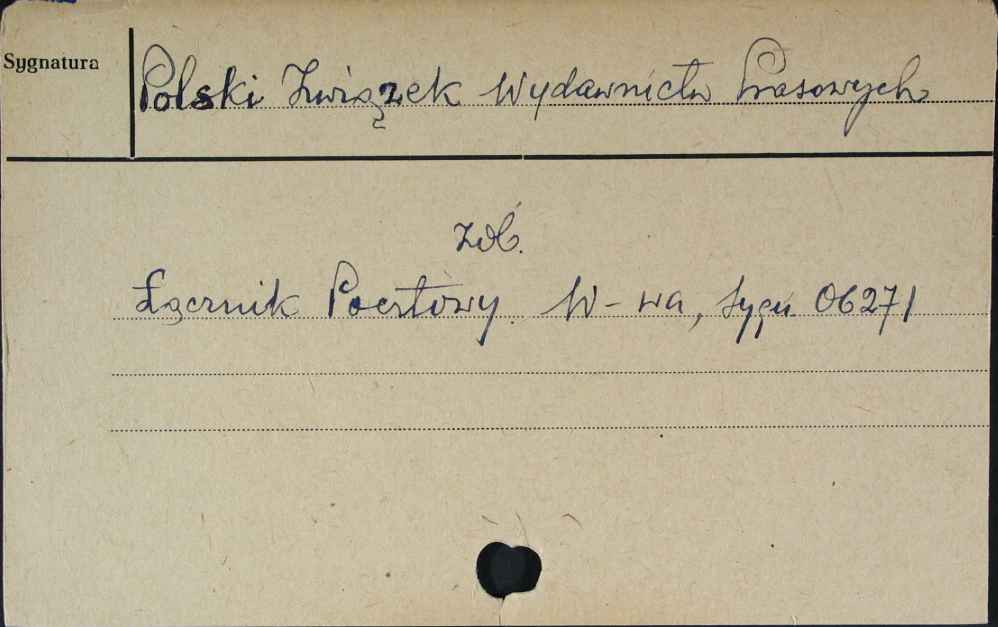 Sygnatura
Polski Związek Wydawnictw Prasowych
zob.
Łącznik Pocztowy. W-wa, sygn. 06271